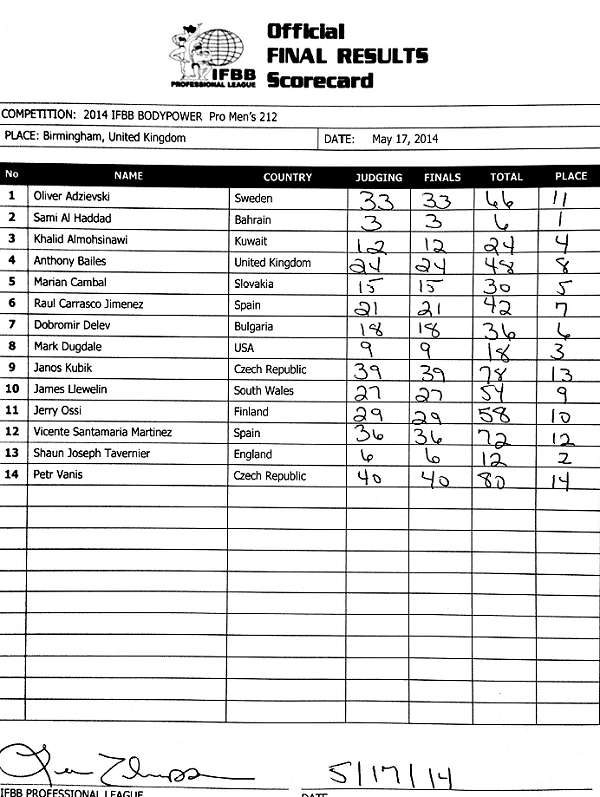 Official
FINAL RESULTS
Scorecard
IFBB
PROFESSIONAL LEAGUE
COMPETITION: 2014 IFBB BODYPOWER Pro Men's 212
PLACE: Birmingham, United Kingdom DATE: May 17, 2014
No NAME COUNTRY JUDGING FINALS TOTAL PLACE
1 Oliver Adzievski Sweden 33 33 66 11
2 Sami Al Haddad Bahrain 3 3 6 1
3 Khalid Almohsinawi Kuwait 12 12 24 4
4 Anthony Bailes United Kingdom 24 24 48 8
5 Marian Cambal Slovakia 15 15 30 5
6 Raul Carrasco Jimenez Spain 21 21 42 7
7 Dobromir Delev Bulgaria 18 18 36 6
8 Mark Dugdale USA 9 9 18 3
9 Janos Kubik Czech Republic 39 39 78 13
10 James Llewelin South Wales 27 27 54 9
11 Jerry Ossi Finland 29 29 58 10
12 Vicente Santamaria Martinez Spain 36 36 72 12
13 Shaun Joseph Tavernier England 6 6 12 2
14 Petr Vanis Czech Republic 40 40 80 14
5/17/14
IFBB PROFESSIONAL LEAGUE DATE